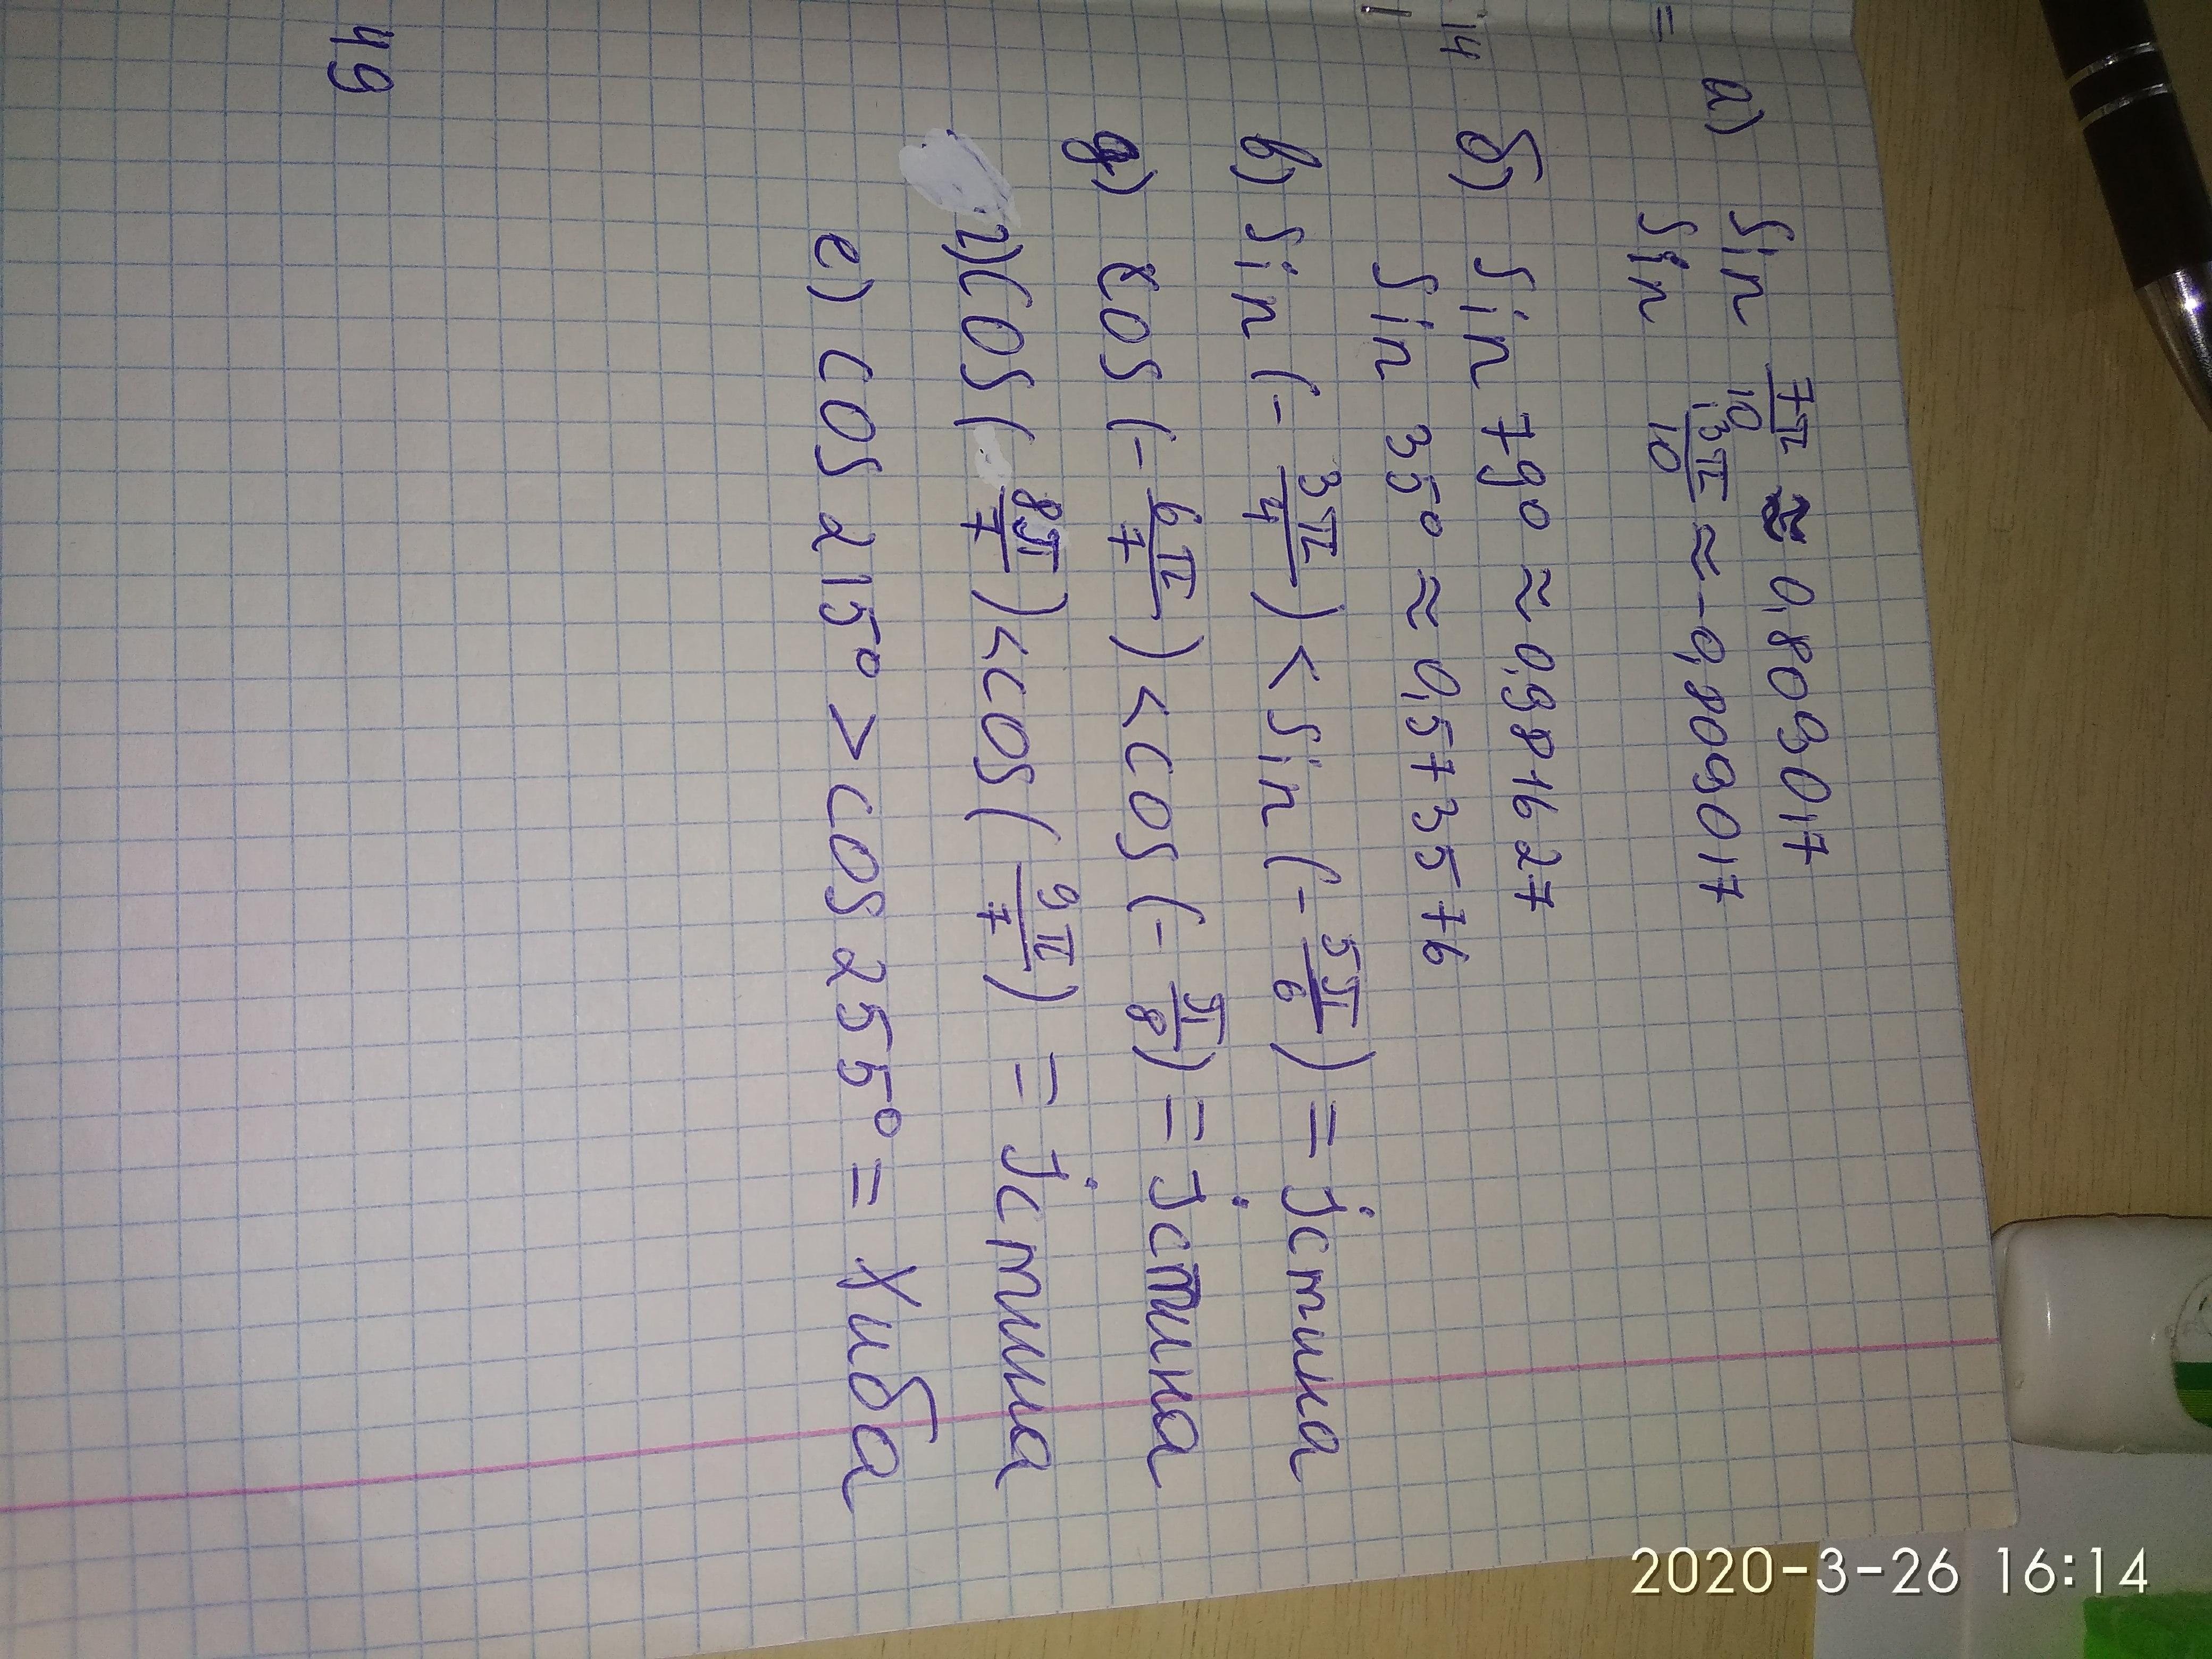 а) sin 7π/10 ≈ 0,809017
sin 13π/10 ≈ -0,809017
б) sin 79° ≈ 0,981627
sin 35° ≈ 0,5735576
в) sin (- 3π/4) < sin (- 5π/6) = істина
д) cos (- 6π/7) < cos (- π/8) = істина
г) cos ( 8π/7) < cos ( 9π/7) = істина
е) cos 215° > cos 255° = хиба
49
=
14
2020-3-26 16:14